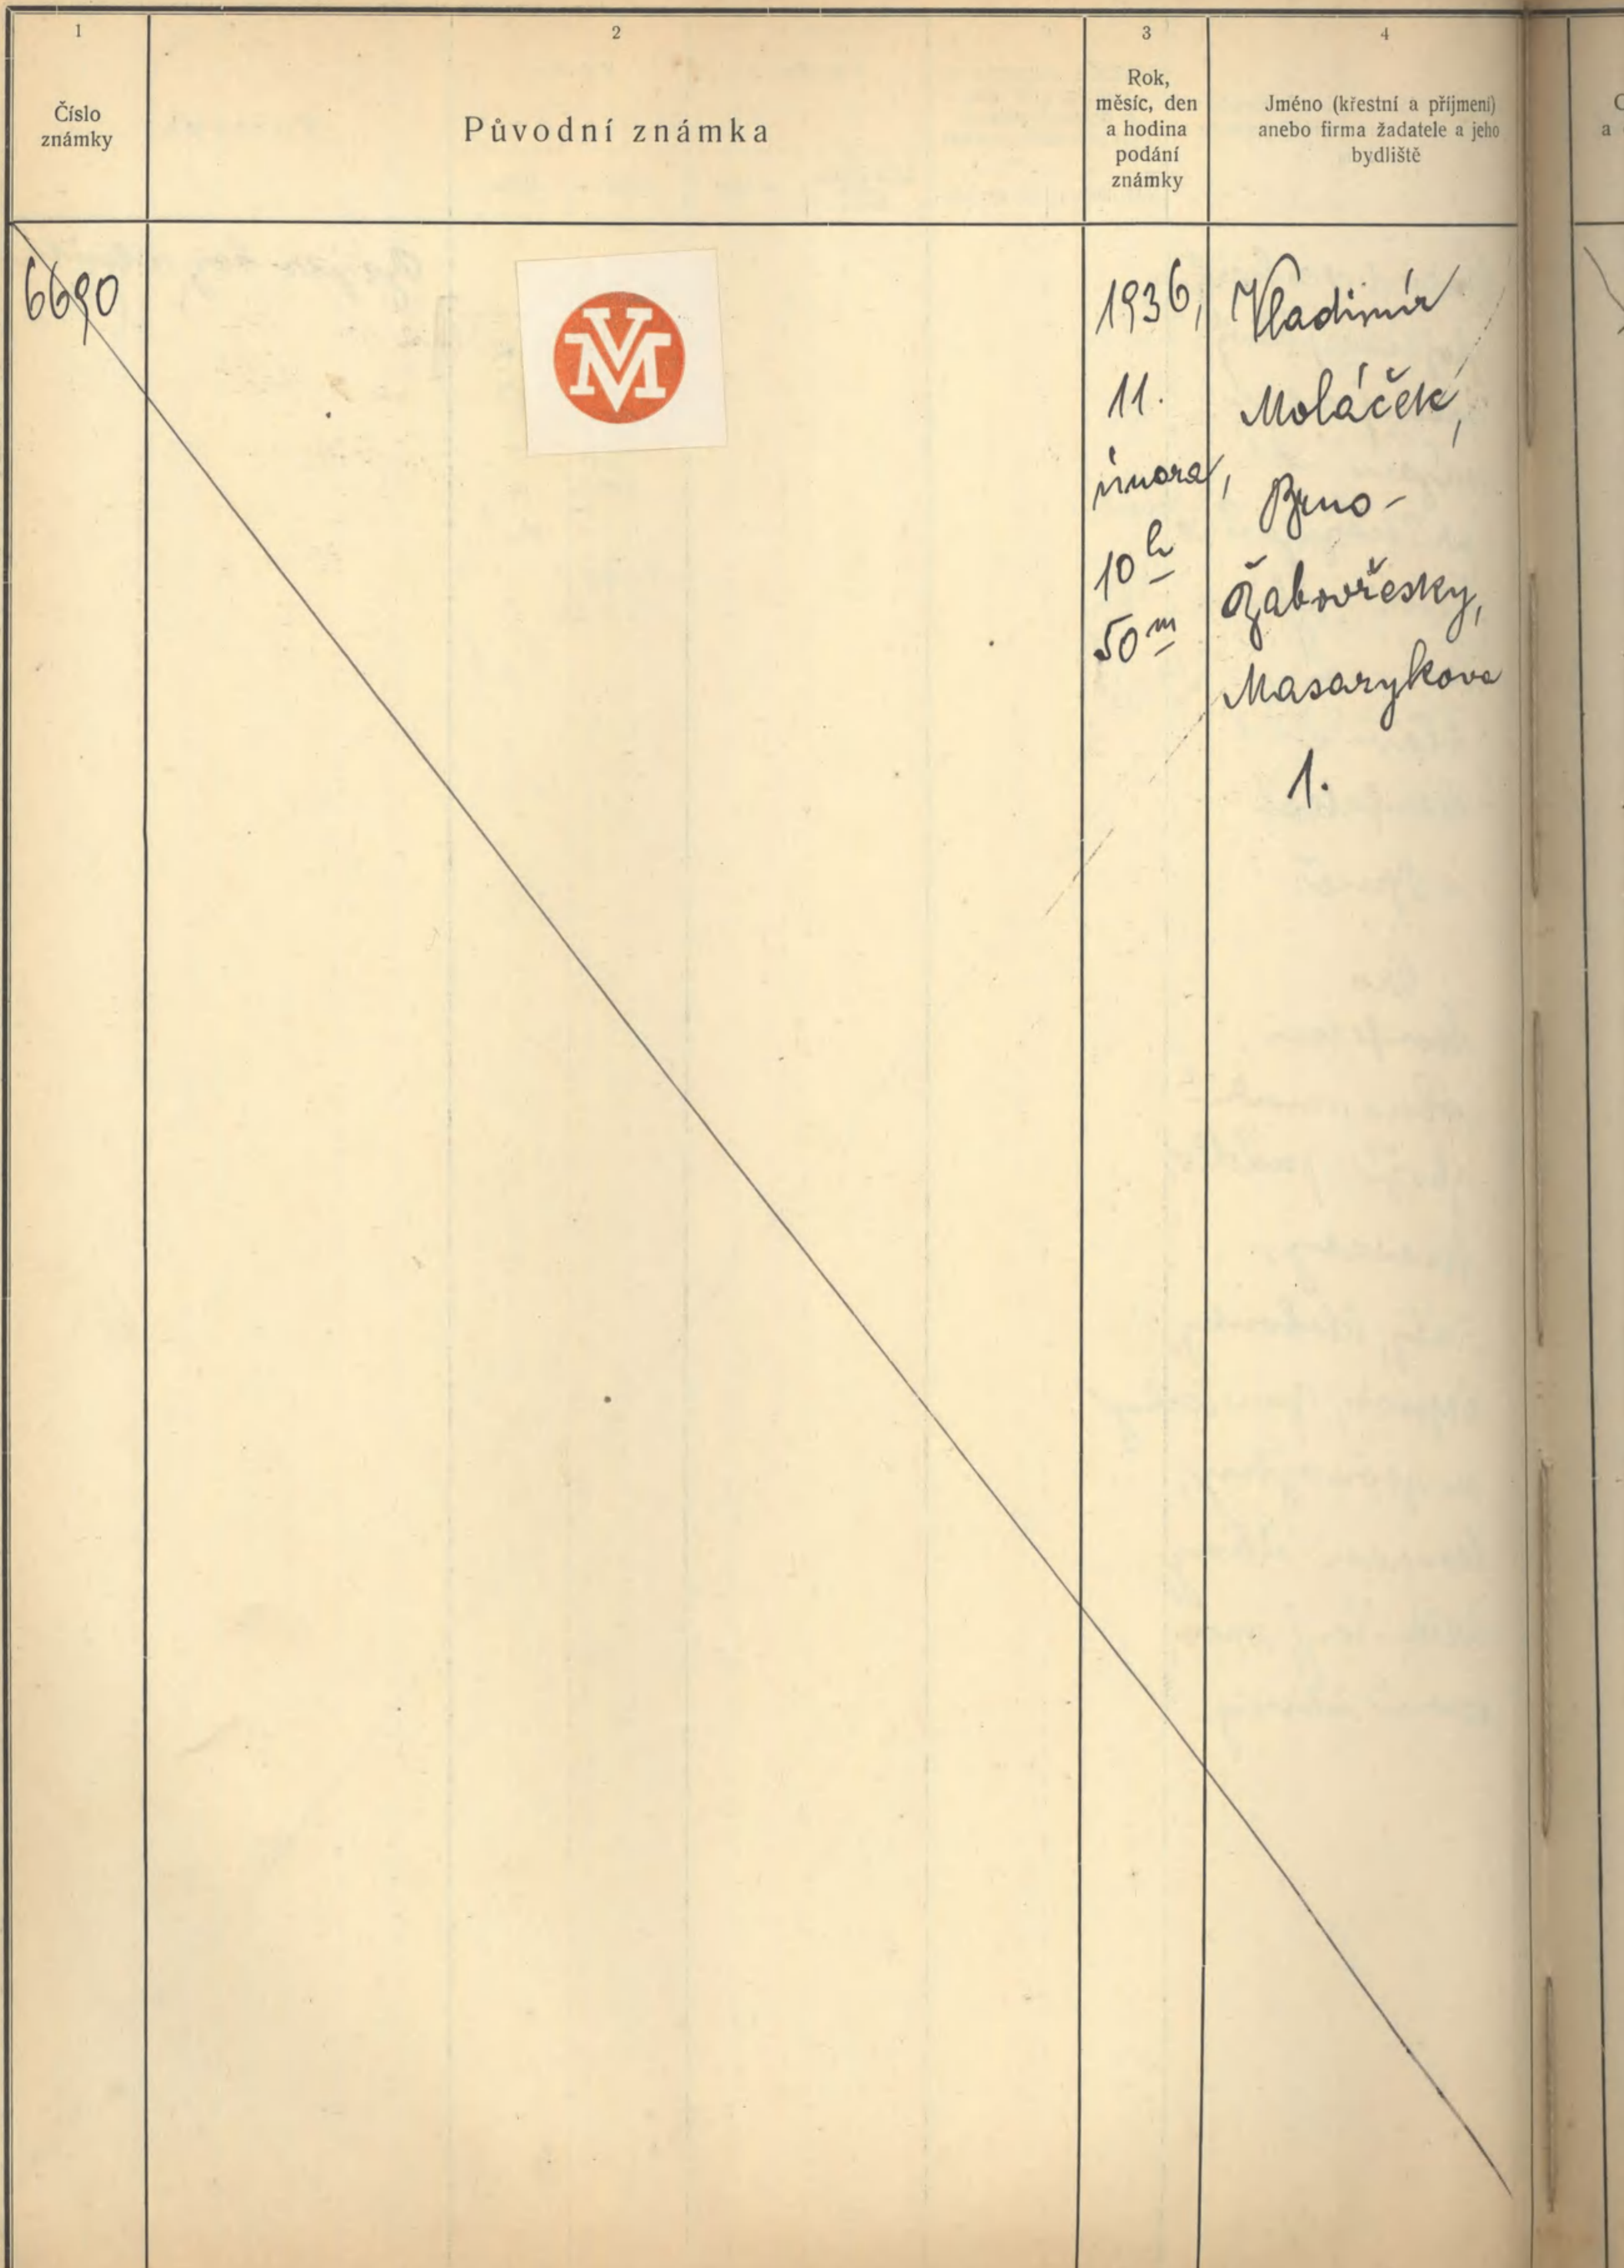 1
Číslo
známky
2
Původní známka
3
Rok,
měsíc, den
a hodina
podání
známky
4
Jméno (křestní a příjmení)
anebo firma žadatele a jeho
bydliště
6690
VM
1936,
11.
února,
10 h
50 m
Vladimír
Moláček,
Brno-
Žabovřesky,
Masarykova
1.